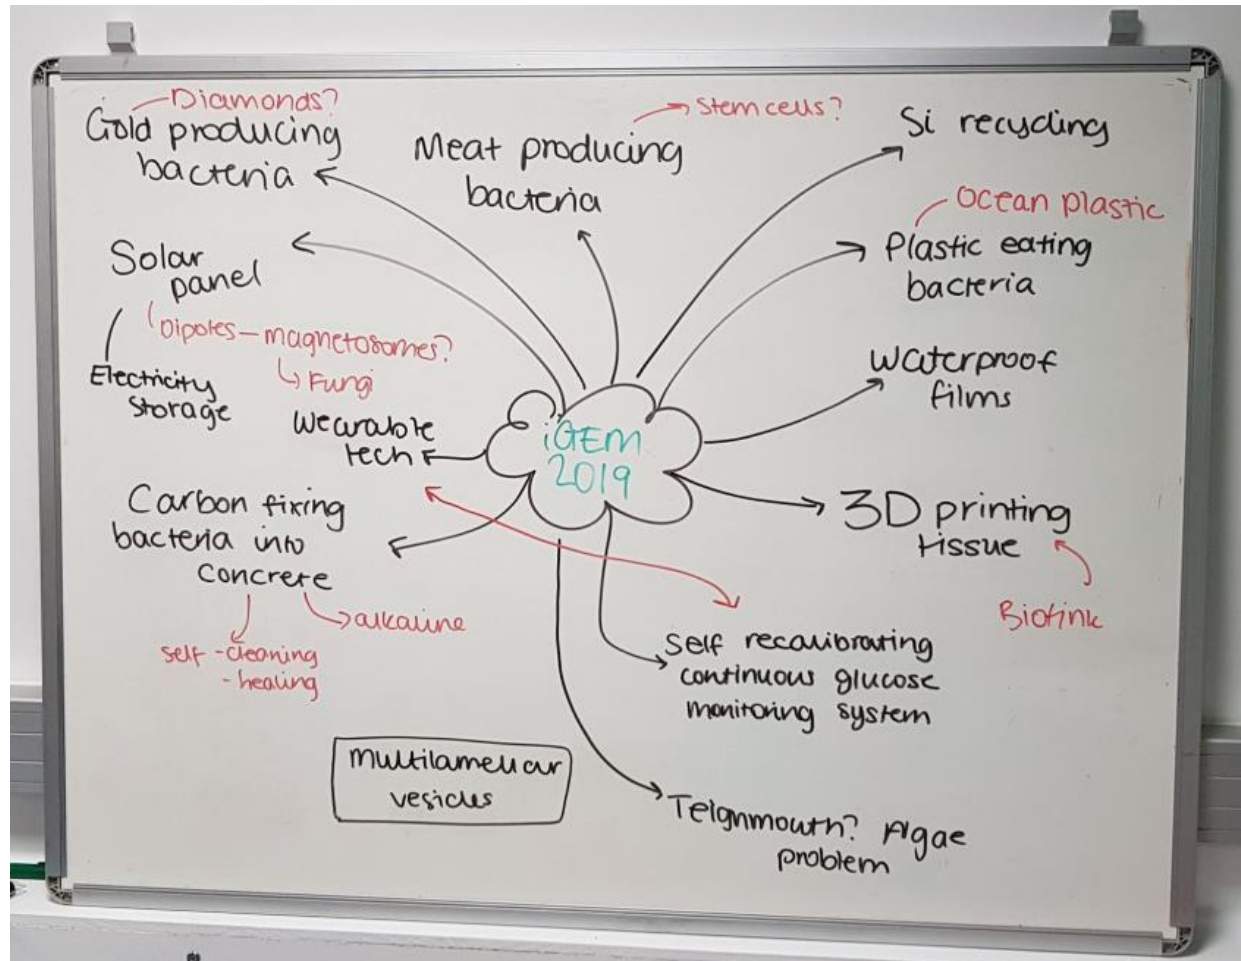 Diamonds?
Gold producing
bacteria
Stem cells?
Meat producing
bacteria
Si recycling
Ocean plastic
Plastic eating
bacteria
Solar
panel
Dipoles - magnetosomes?
Fungi
Electricity
storage
Waterproof
films
Wearable
tech
iGEM
2019
Carbon fixing
bacteria into
concrete
alkaline
self - cleaning
- healing
3D printing
tissue
Biotink
Self recalibrating
continuous glucose
monitoring system
Multilamellar
vesicles
Teignmouth? Algae
problem